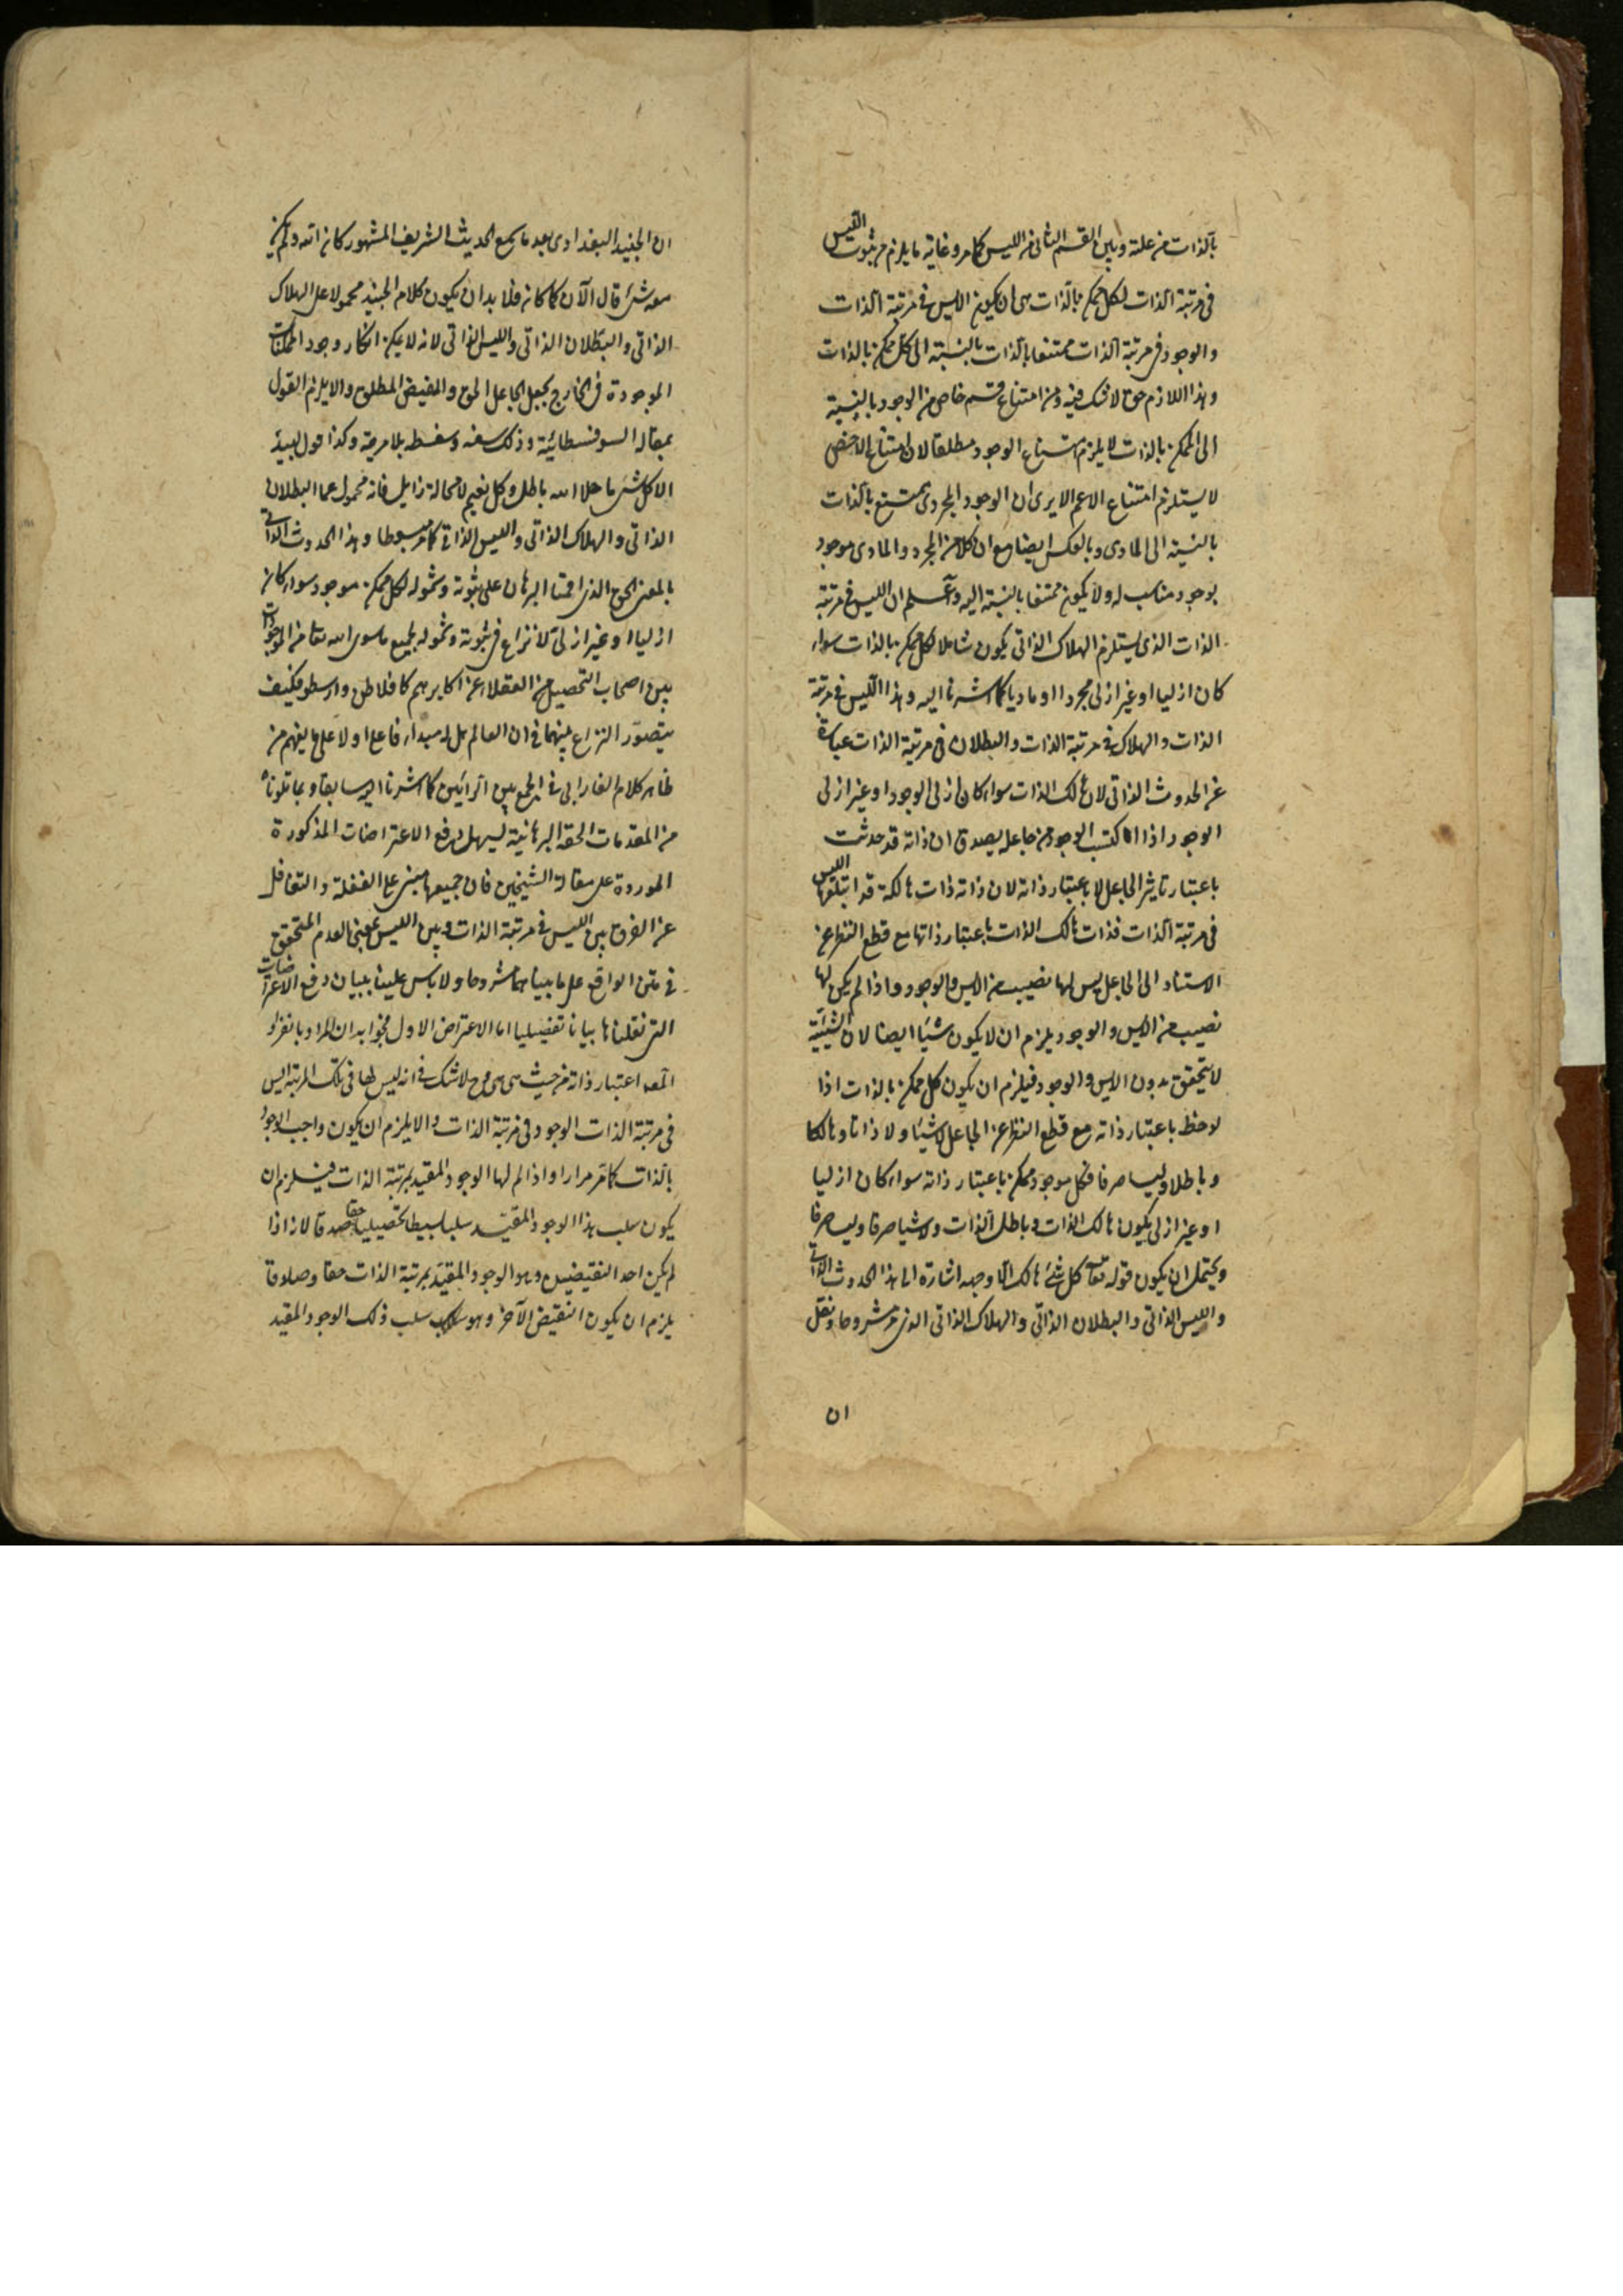 بالذات من علة وبين القسم الثانى من الليس كما مر وغاية ما يلزم من ثبوت الليس
فى مرتبة الذات لكل ممكن بالذات هى ان يكون الايس فى مرتبة الذات
والوجود فى مرتبة الذات ممتنعا بالذات بالنسبة الى كل ممكن بالذات
وهذا اللازم حق لا شك فيه ومن امتناع قسم خاص من الوجود بالنسبة
الى الممكن بالذات لا يلزم امتناع الوجود مطلقا لان امتناع الاخص
لا يستلزم امتناع الاعم الا يرى ان الوجود المجردى ممتنع بالذات
بالنسبة الى المادى وبالعكس ايضا مع ان كلا من المجرد والمادى موجود
بوجود مناسب له ولا يكون ممتنعا بالنسبة اليه واعلم ان الليس فى مرتبة
الذات الذى يستلزم الهلاك الذاتى يكون شاملا لكل ممكن بالذات سواء
كان ازليا او غير ازلى مجردا او ماديا كما اشرنا اليه وهذا الليس فى مرتبة
الذات والهلاك فى مرتبة الذات والبطلان فى مرتبة الذات عبارة
عن الحدوث الذاتى لان هالك الذات سواء كان ازلى الوجود او غير ازلى
الوجود اذا اكتسب الوجود من جاعله يصدق ان ذاته قد حدثت
باعتبار تاثير الجاعل لا باعتبار ذاته لان ذاته ذات هالكة قد ابتلعها الليس
فى مرتبة الذات فذات هالك الذات باعتبار ذاتها مع قطع النظر عن
الاستناد الى الجاعل ليس لها نصيب من الايس والوجود واذا لم يكن لها
نصيب من الايس والوجود يلزم ان لا يكون شيئا ايضا لان الشيئية
لا يتحقق بدون الايس والوجود فيلزم ان يكون كل ممكن بالذات اذا
لوحظ باعتبار ذاته مع قطع النظر عن الجاعل لا شيئا ولا ذاتا وهالكا
وباطلا وليسا صرفا فكل موجود ممكن باعتبار ذاته سواء كان ازليا
او غير ازلى يكون هالك الذات وباطل الذات ولا شيئا صرفا وليسا صرفا
ويحتمل ان يكون قوله تعالى كل شئ هالك الا وجهه اشارة الى هذا الحدوث الذاتى
والليس الذاتى والبطلان الذاتى والهلاك الذاتى الذى مر مشروحا ونقل
ان
ان الجنيد البغدادى بعد ما سمع الحديث الشريف المشهور كان الله ولم يكن
معه شئ قال الآن كما كان فلا بد ان يكون كلام الجنيد محمولا على الهلاك
الذاتى والبطلان الذاتى والليس الذاتى لانه لا يمكن انكار وجود الممكنات
الموجودة فى الخارج بجعل الجاعل الحق والمفيض المطلق والا يلزم القول
بمقالة السوفسطائية وذلك سفه وسفسطه بلا مرية وكذا قول لبيد
الا كل شئ ما خلا الله باطل وكل نعيم لا محالة زايل فانه محمول على البطلان
الذاتى والهلاك الذاتى والليس الذاتى كما مر مبسوطا وهذا الحدوث الذاتى
بالمعنى الحق الذى اقمنا البرهان على ثبوته وشموله لكل ممكن موجود سواء كان
ازليا او غير ازلى لا نزاع فى ثبوته وشموله لجميع ما سوى الله تعالى من الموجودات
بين اصحاب التحصيل من العقلاء عن اكابرهم كافلاطن وارسطو فكيف
يتصور النزاع بينهما فى ان العالم هل له مبداء فاعل او لا على ما يفهم من
ظاهر كلام الفارابى فى الجمع بين الرأيين كما اشرنا اليه سابقا وبما تلوناه
من المقدمات الحقه البرهانية يسهل دفع الاعتراضات المذكورة
الموردة على مقالة الشيخين فان جميعها مبنى على الغفلة والتغافل
عن الفرق بين الليس فى مرتبة الذات وبين الليس بمعنى العدم المتحقق
فى متن الواقع على ما بيناهما مشروحا ولا باس علينا ببيان دفع الاعتراضات
التى نقلناها بيانا تفضيليا اما الاعتراض الاول فجوابه ان المراد بانفراد
اعتبار ذاته من حيث هى هى وح لا شك فى انه ليس لها فى تلك المرتبة الايس
فى مرتبة الذات الوجود فى مرتبة الذات والا يلزم ان يكون واجب الوجود
بالذات كما مر مرارا واذا لم لها الوجود المقيد بمرتبة الذات فيلزم ان
يكون سلب هذا الوجود المقيد سلبا بسيطا تحصيليا حقا صدقا لانه اذا
لم يكن احد النقيضين وهو الوجود المقيد بمرتبة الذات حقا وصادقا
يلزم ان يكون النقيض الآخر وهو سلب ذلك الوجود المقيد